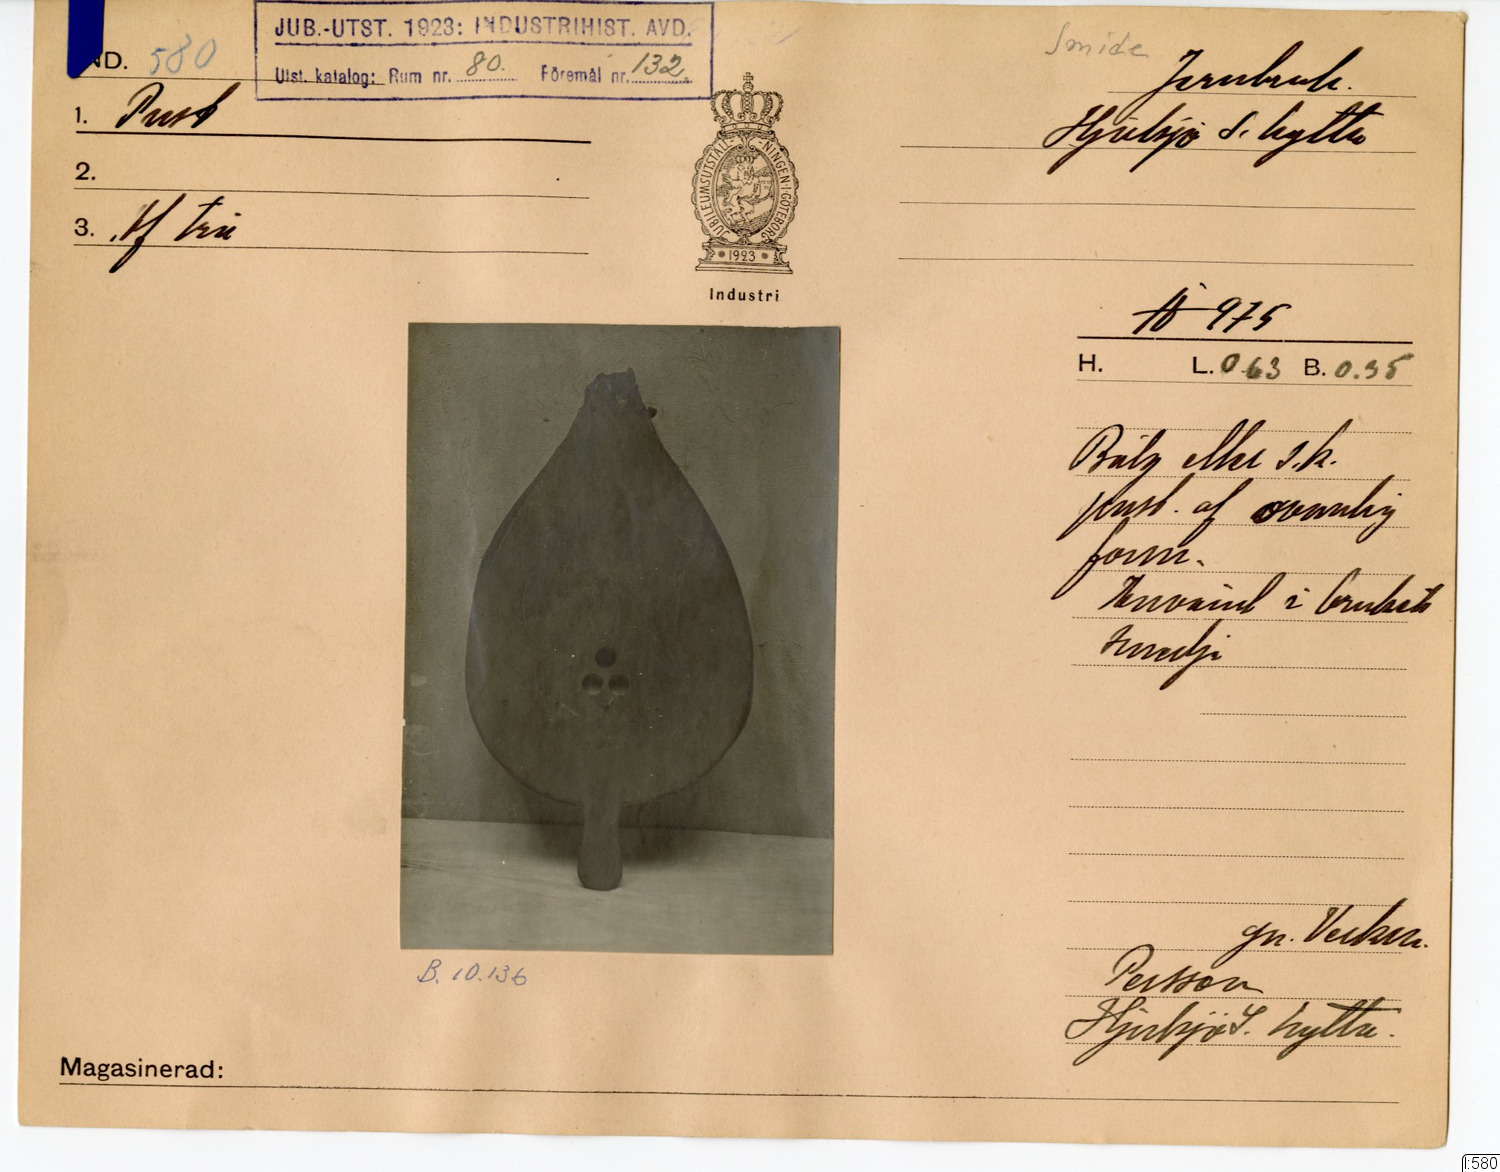 JUB.-UTST. 1923: INDUSTRIHIST. AVD.
Utst. katalog: Rum nr. 80. Föremål nr. 132.
ND. 580
1. Pust
2.
3. Af trä
JUBILEUMSUTSTÄLLNINGEN I GÖTEBORG
1923
Industri
Smide
Jernbruk.
S. hytta
975
H. L. 0.63 B. 0.35
Bälg eller s.k.
pust. af ovanlig
form.
Använd i brukets
smedja
gn.
Persson
S. hytta.
B. 10.136
Magasinerad:
I:580